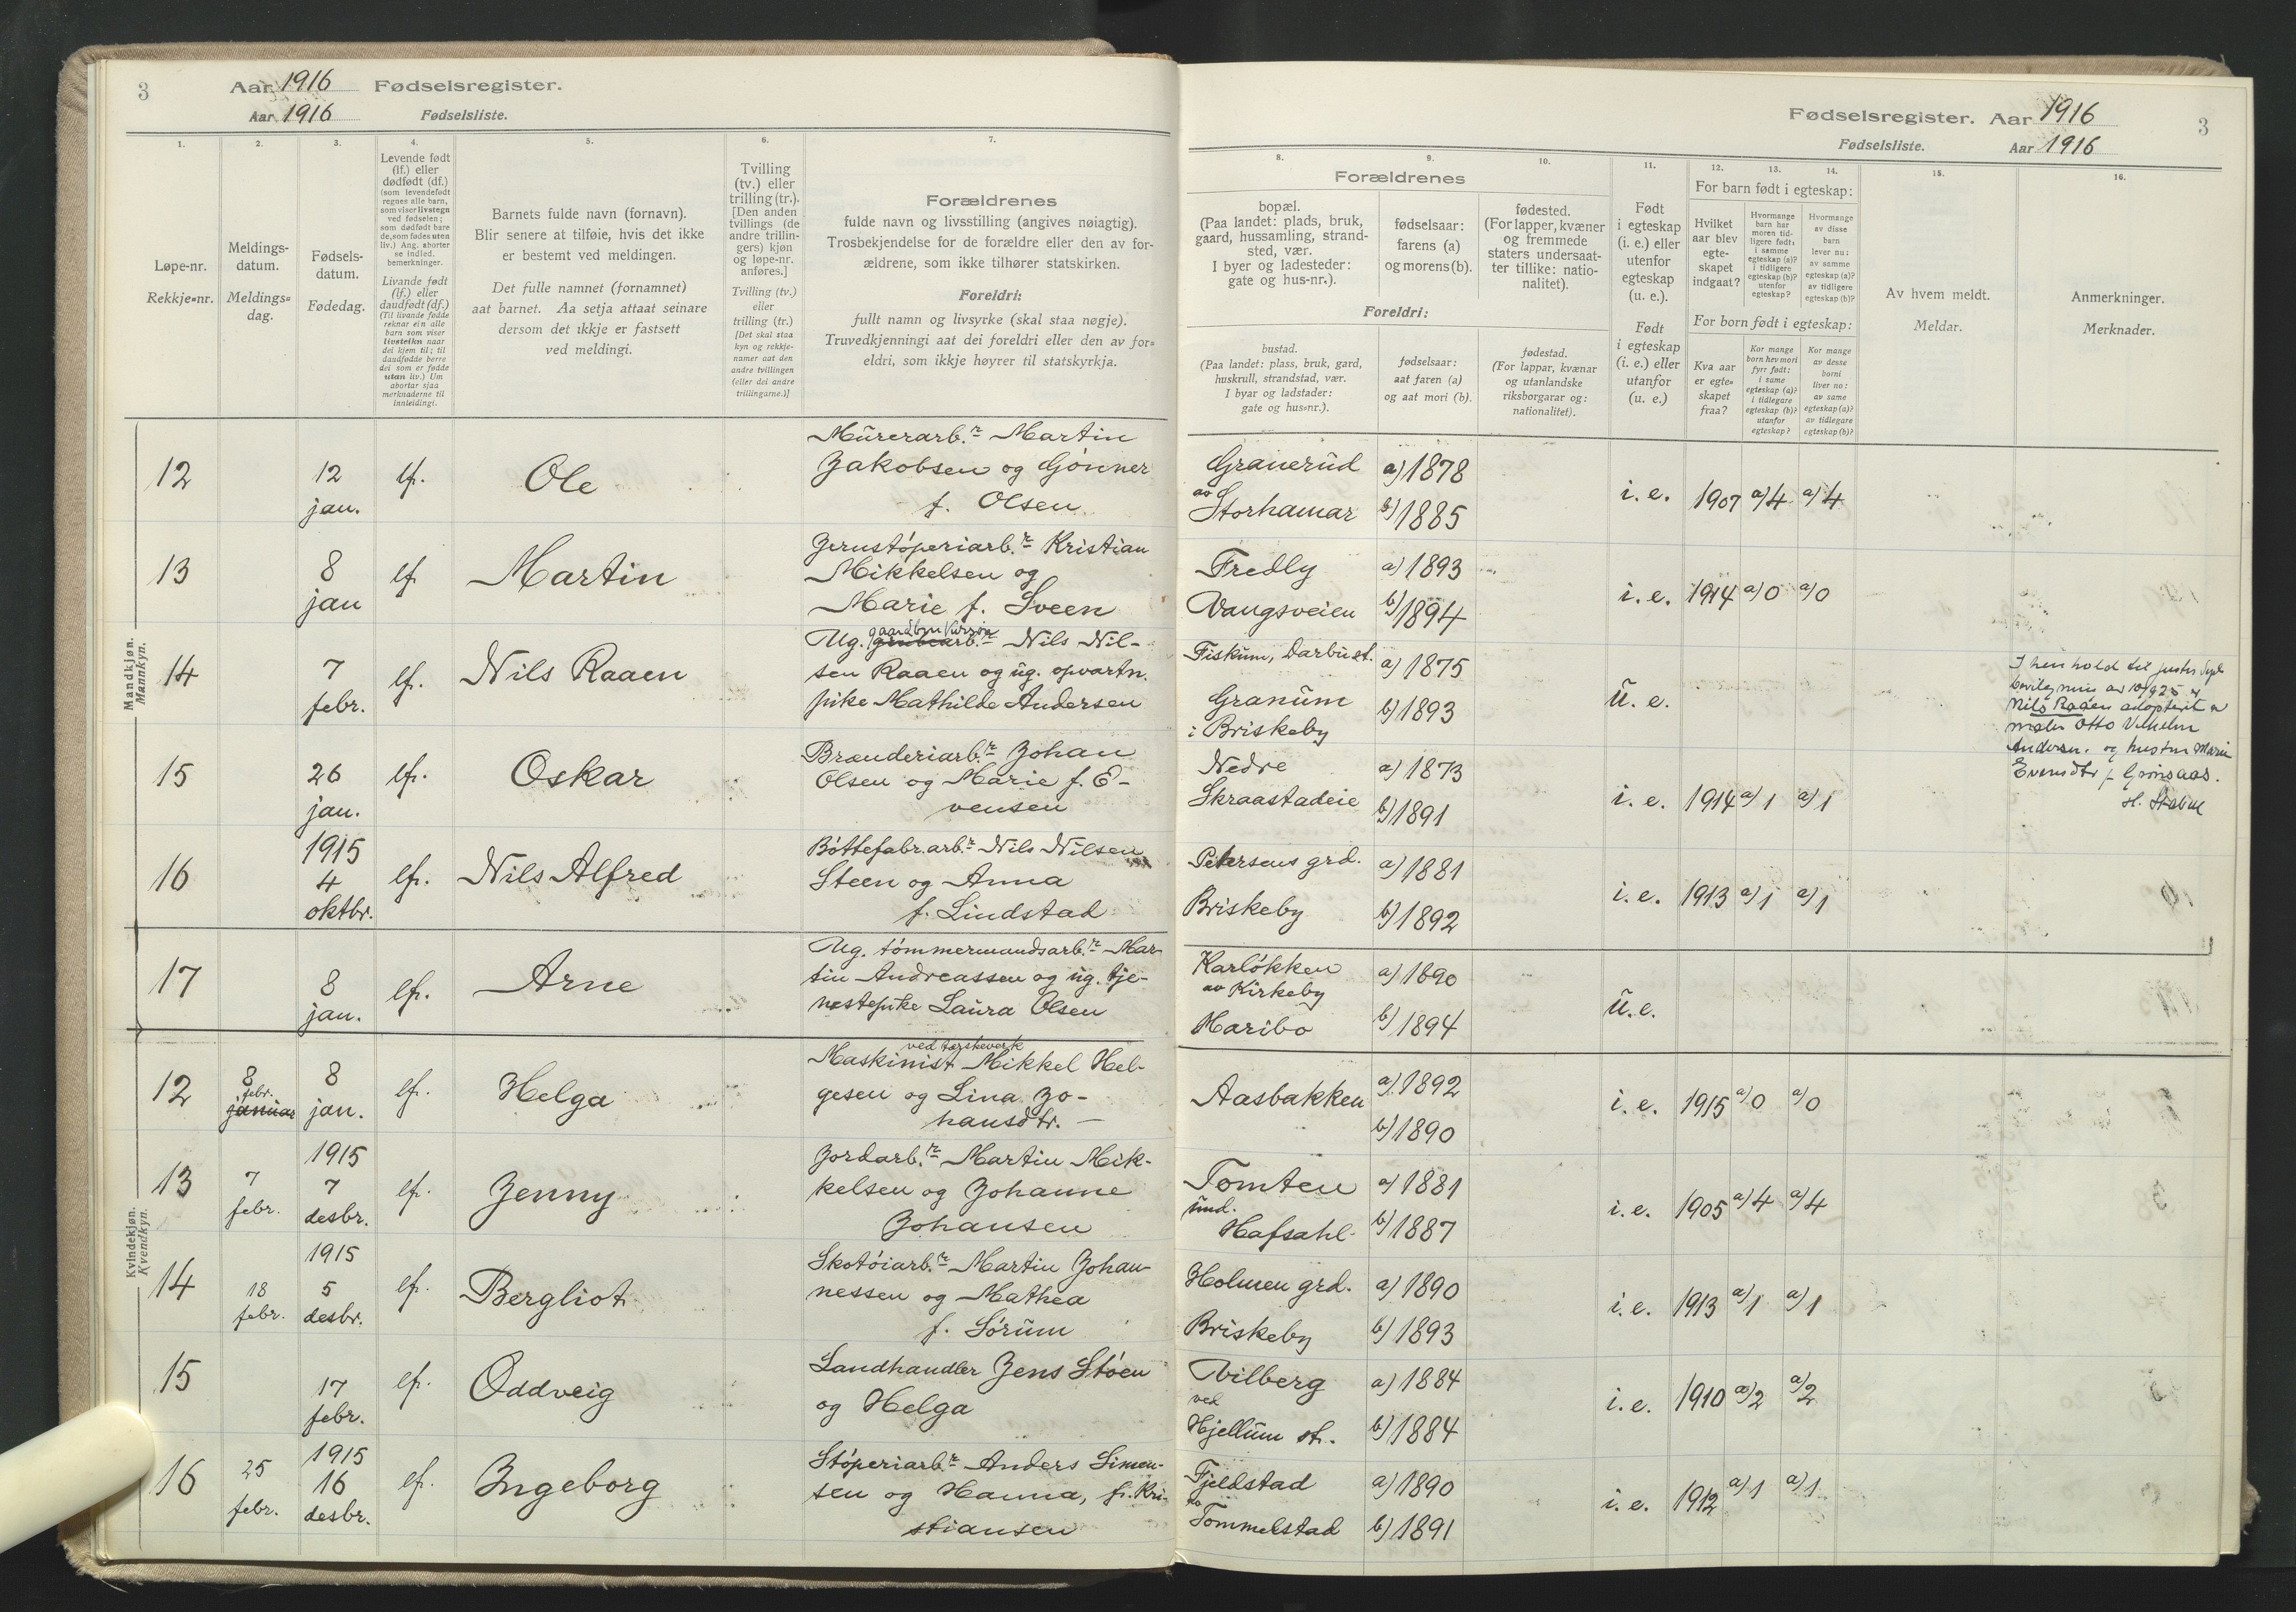 3
Aar 1916 Fødselsregister.
Aar 1916 Fødselsliste.
Fødselsregister. Aar 1916
Fødselsliste. Aar 1916
3
1.
Løpe-nr.
Rekkje=nr.
2.
Meldings-
datum.
Meldings=
dag.
3.
Fødsels-
datum.
Fødedag.
4.
Levende født
(lf.) eller
dødfødt (df.)
(som levendefødt
regnes alle barn,
som viser livstegn
ved fødselen;
som dødfødt bare
de, som fødes uten
liv.) Ang. aborter
se indled.
bemerkninger.
Livande født
(lf.) eller
daudfødt (df.)
(Til livande fødde
reknar ein alle
barn som viser
livsteikn naar
dei kjem til; til
daudfødde berre
dei som er fødde
utan liv.) Um
abortar sjaa
merknaderne til
innleidingi.
5.
Barnets fulde navn (fornavn).
Blir senere at tilføie, hvis det ikke
er bestemt ved meldingen.
Det fulle namnet (fornamnet)
aat barnet. Aa setja attaat seinare
dersom det ikkje er fastsett
ved meldingi.
6.
Tvilling
(tv.) eller
trilling (tr.).
[Den anden
tvillings (de
andre trillin-
gers) kjøn
og løpe-nr.
anføres.]
Tvilling (tv.)
eller
trilling (tr.)
[Det skal staa
kyn og rekkje-
numer aat den
andre tvillingen
(eller dei andre
trillingarne.)]
7.
Forældrenes
fulde navn og livsstilling (angives nøiagtig).
Trosbekjendelse for de forældre eller den av for-
ældrene, som ikke tilhører statskirken.
Foreldri:
fullt namn og livsyrke (skal staa nøgje).
Truvedkjenningi aat dei foreldri eller den av for=
eldri, som ikkje høyrer til statskyrkja.
Forældrenes
8.
bopæl.
(Paa landet: plads, bruk,
gaard, hussamling, strand-
sted, vær.
I byer og ladesteder:
gate og hus-nr.).
9.
fødselsaar:
farens (a)
og morens (b).
10.
fødested.
(For lapper, kvæner
og fremmede
staters undersaat-
ter tillike: natio-
nalitet).
Foreldri:
bustad.
(Paa landet: plass, bruk, gard,
huskrull, strandstad, vær.
I byar og ladstader:
gate og hus=nr.).
fødselsaar:
aat faren (a)
og aat mori (b).
fødestad.
(For lappar, kvænar
og utanlandske
riksborgarar og:
nationalitet).
11.
Født
i egteskap
(i. e.) eller
utenfor
egteskap
(u. e.).
Født
i egteskap
(i. e.) eller
utanfor
(u. e.)
12. 13. 14.
For barn født i egteskap:
Hvilket
aar blev
egte-
skapet
indgaat?
Hvormange
barn har
moren tid-
ligere født:
i samme
egteskap (a)?
i tidligere
egteskap (b)?
utenfor
egteskap?
Hvormange
av disse
barn
lever nu:
av samme
egteskap (a)?
av tidligere
egteskap (b)?
For born født i egteskap:
Kva aar
er egte=
skapet
fraa?
Kor mange
born hev mori
fyrr født:
i same
egteskap (a)?
i tidlegare
egteskap (b)?
utanfor
egteskap?
Kor mange
av desse
borni
liver no:
av same
egteskap (a)?
av tidlegare
egteskap (b)?
15.
Av hvem meldt.
Meldar.
16.
Anmerkninger.
Merknader.
Mandkjøn.
Mannkyn.
12
12
jan.
lf.
Ole
Mürerarb.r Martin
Jakobsen og Gönner
f. Olsen
Granerüd
av
Storhamar
a) 1878
b) 1885
i. e. 1907 a) 4 a) 4
13
8
jan
lf.
Martin
Jernstöperiarb.r Kristian
Mikkelsen og
Marie f. Sveen
Fredly
Vangsveien
a) 1893
b) 1894
i. e. 1914 a) 0 a) 0
14
7
febr.
lf.
Nils Raaen
Ug. Nils Nil-
sen Raaen og üg. opvartn.
pike Mathilde Andersen
Fiskum, Darbu st.
Granüm
i Briskeby
a) 1875
b) 1893
ü. e.
I henhold til
Nils Raaen adoptert av
maler Otto Vilhelm
Andersen og hustru Marie
15
26
jan.
lf.
Oskar
Brænderiarb.r Johan
Olsen og Marie f. E-
vensen
Nedre
Skraastadeie
a) 1873
b) 1891
i. e. 1914 a) 1 a) 1
16
1915
4
oktbr.
lf.
Nils Alfred
Böttefabr.arb.r Nils Nilsen
Steen og Anna
f. Lindstad
Petersens grd.
Briskeby
a) 1881
b) 1892
i. e. 1913 a) 1 a) 1
17
8
jan.
lf.
Arne
Ug. tömmermandsarb.r Mar-
tin Andreassen og üg. tje-
nestepike Laüra Olsen
Karlökken
av Kirkeby
Maribo
a) 1890
b) 1894
ü. e.
Kvindekjøn.
Kvendkyn.
12
8
febr.
januar
8
jan.
lf.
Helga
ved tærskeverk
Maskinist Mikkel Hel-
gesen og Lina Jo-
hansdtr.
Aasbakken
a) 1892
b) 1890
i. e. 1915 a) 0 a) 0
13
7
febr.
1915
7
desbr.
lf.
Jenny
Jordarb.r Martin Mik-
kelsen og Johanne
Johansen
Tomten
ünd.
Hafsahl
a) 1881
b) 1887
i. e. 1905 a) 4 a) 4
14
18
febr.
1915
5
desbr.
lf.
Bergliot
Skotöiarb.r Martin Johan-
nessen og Mathea
f. Sörüm
Holmen grd.
Briskeby
a) 1890
b) 1893
i. e. 1913 a) 1 a) 1
15
17
febr.
lf.
Oddveig
Landhandler Jens Stöen
og Helga
Vilberg
ved
Hjellüm st.
a) 1884
b) 1884
i. e. 1910 a) 2 a) 2
16
25
febr.
1915
16
desbr.
lf.
Ingeborg
Stöperiarb.r Anders Simen-
sen og Hanna, f. Kri-
stiansen
Fjeldstad
av
Tommelstad
a) 1890
b) 1891
i. e. 1912 a) 1 a) 1